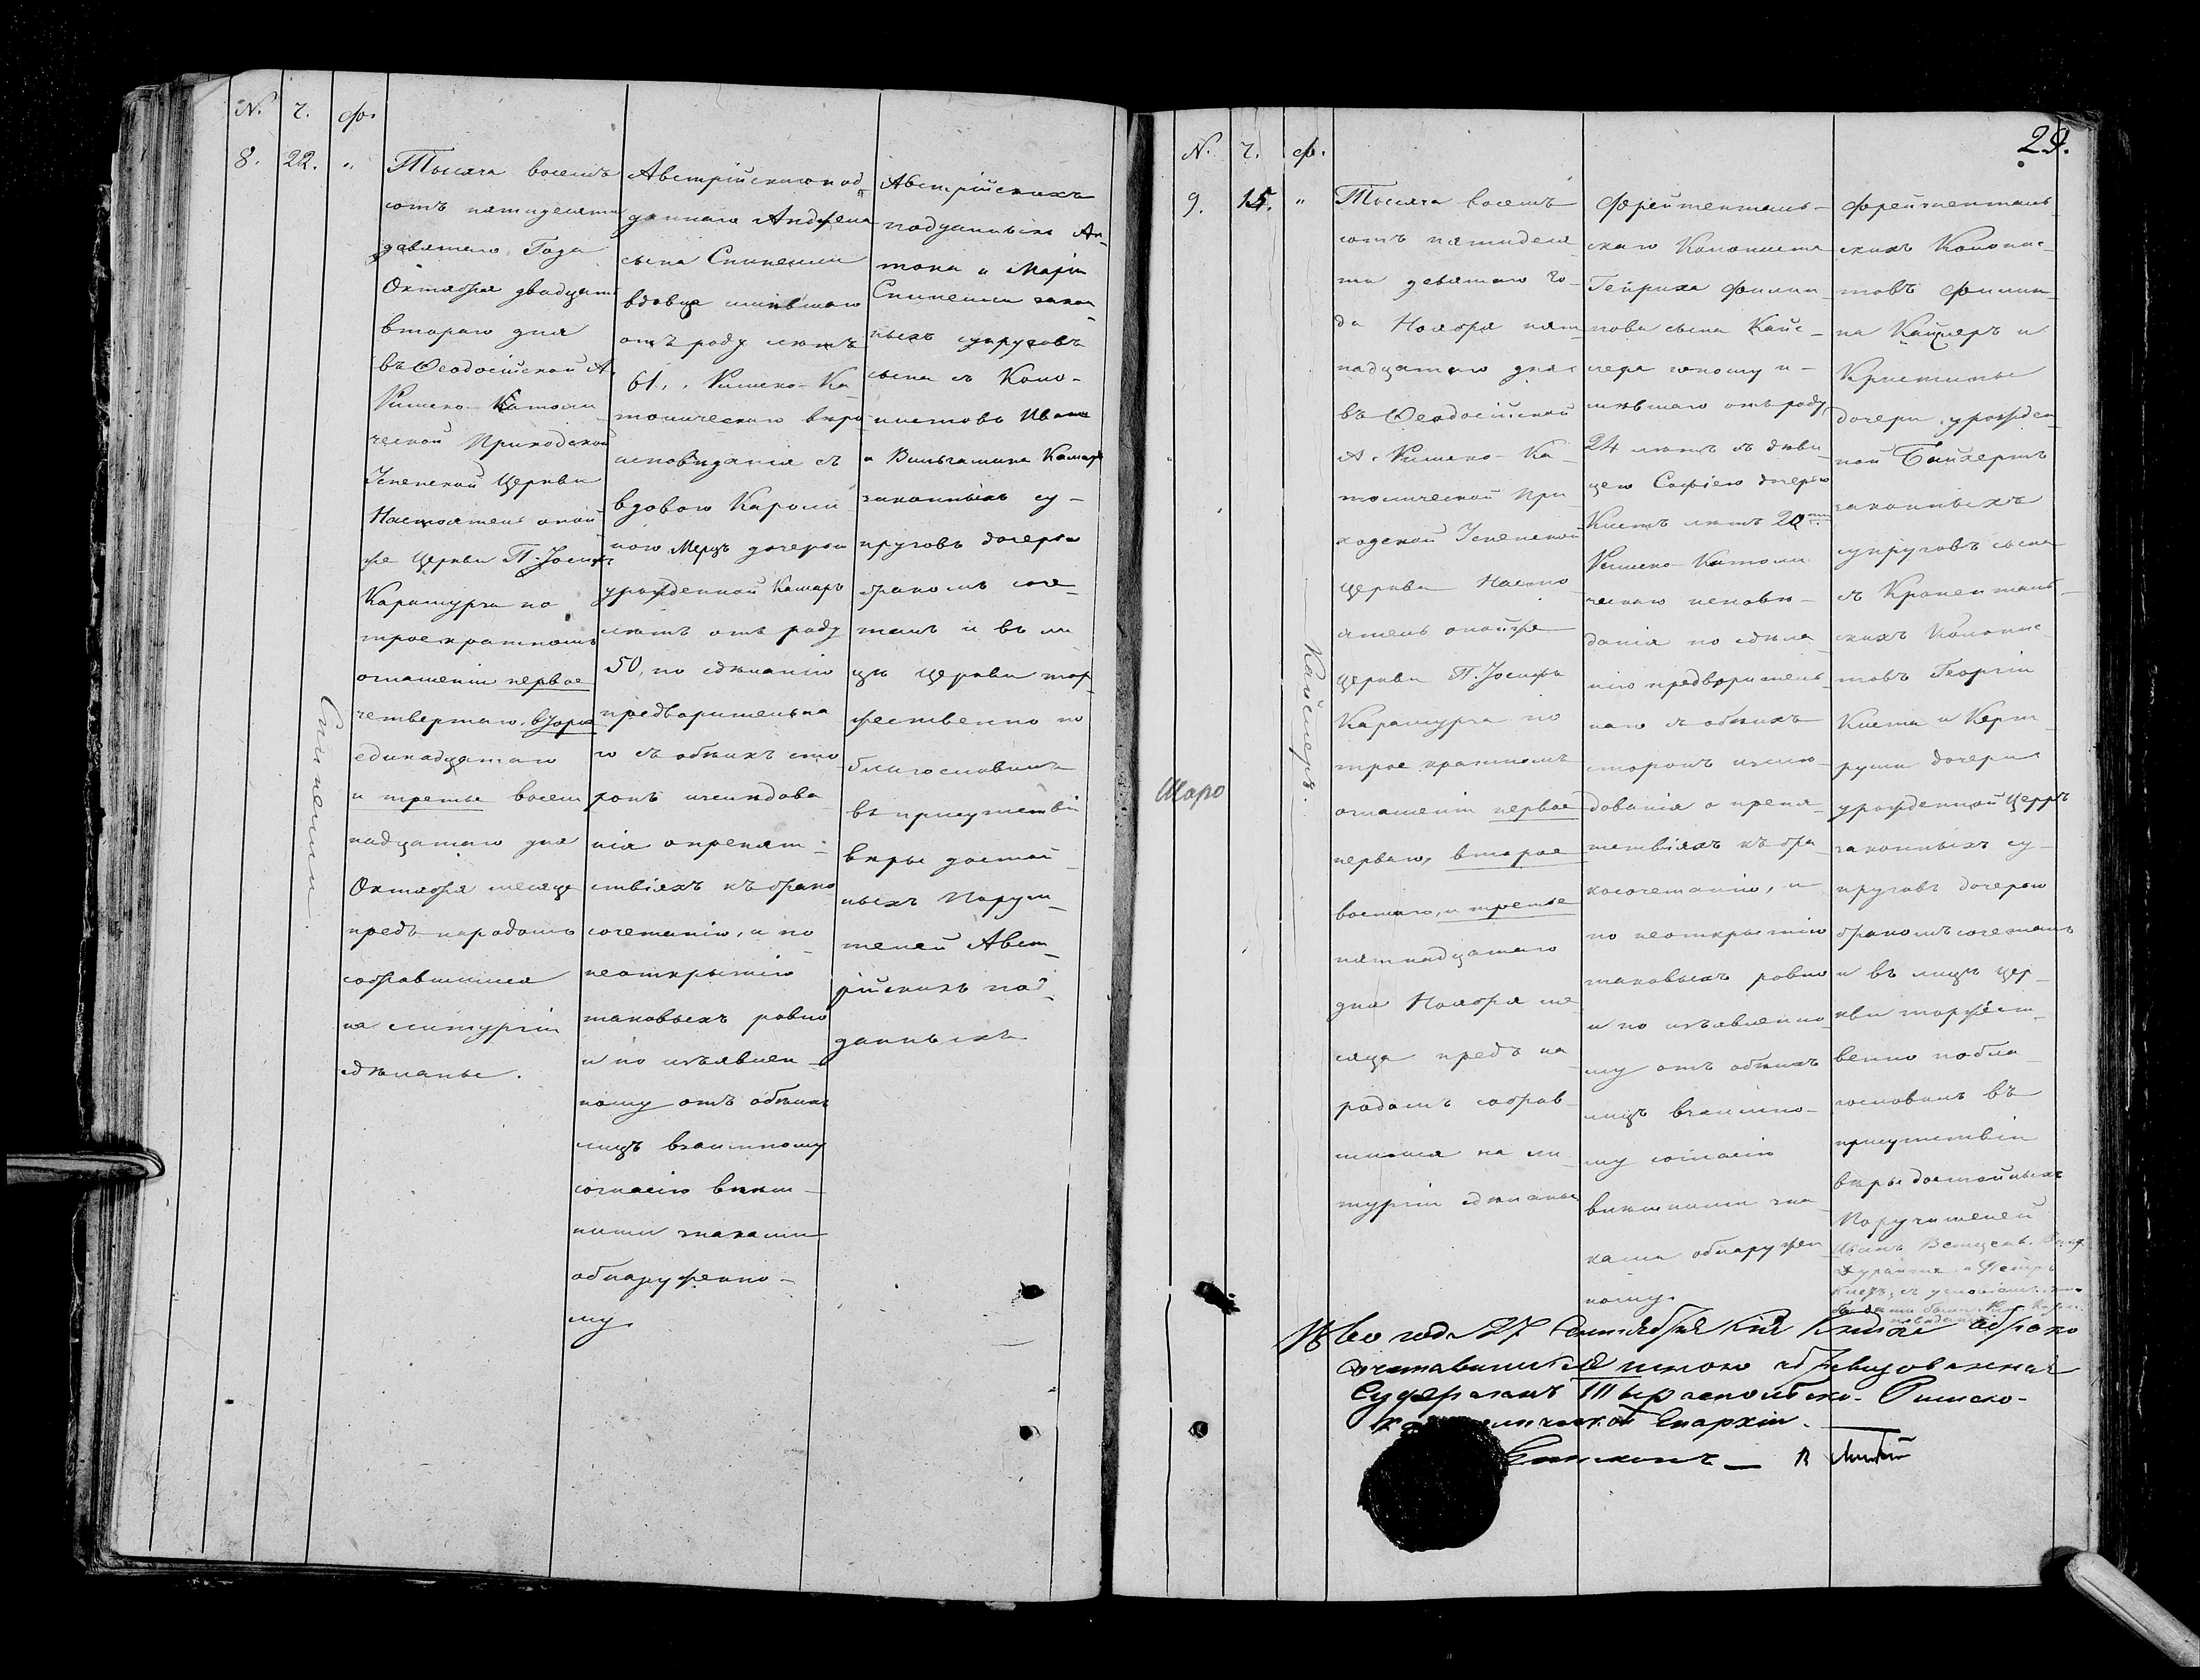 N. г. ф.
8. 22. "
Тысяча восемъ
сотъ пятидесяти
девятаго Года
Октября двадцать
втораго дня
въ Ѳеодосійской А.
Римско-Католи
ческой Приходской
Успенской Церкви
Настоятель оной
же Церкви П. Іосифъ
Карашурга по
троекратномъ
оглашеніи первое
четвертаго, второе
единадцатаго
и третье восем
надцатаго дня
Октября месяца
предъ народомъ
собравшимся
на литургіи
сдѣланье.
Австрійскаго под
даннаго Андрея
сына Спинелли
вдовца имѣвшаго
отъ роду лѣтъ
61. Римско-Ка
толическаго вѣро
исповѣданія съ
вдовою Кароли
ною Мерцъ дочерью
урожденной Камаръ
лѣтъ отъ роду
50, по сдѣланію
предварительна
го съ обѣихъ сто
ронъ изслѣдова
нія опрепят-
ствіяхъ къ брако
сочетанію, и по
неоткрытію
таковыхъ равно
и по изъявлен
ному отъ обѣихъ
лицъ взаимному
согласію внѣш-
ними знаками
обнаруженно-
му
Австрійскихъ
подданныхъ Ан-
тона и Маріи
Спинелли закон
ныхъ супруговъ
сына съ Коло-
нистовъ Ивана
и Вильгелмина Камаръ
законныхъ су-
пруговъ дочерью
бракомъ соче-
талъ и въ ли
цѣ Церкви тор-
жественно по
благословилъ
въ присутствіи
вѣры достой-
ныхъ Поручи-
телей Авст-
рійскихъ под-
данныхъ
Спинелли
29.
N. г. ф.
9. 15. "
Тысяча восемъ
сотъ пятидеся
ти девятаго Го-
да Ноября пят
надцатаго дня
въ Ѳеодосійской
А. Римско-Ка-
толической При
ходской Успенской
Церкви Насто
ятель онойже
Церкви П. Іосифъ
Карашурга по
трое кратномъ
оглашеніи первое
перваго, второе
восьмаго, и третье
пятнадцатаго
дня Ноября ме
сяца предъ на
родомъ собрав-
шимся на ли
тургіи сдѣланье
Фрейтенталь-
скаго Колониста
Гейриха Филип-
пова сына Кайс-
лера юношу и-
мѣвшаго отъ роду
24 лѣтъ съ дѣви
цею Софіею дочерью
Кистъ лѣтъ 20
Римско-Католи
ческаго исповѣ-
данія по сдѣла
нію предваритель-
наго съ обѣихъ
сторонъ изслѣ-
дованія о препя-
тствіяхъ къ бра-
косочетанію, и
по неоткрытію
таковыхъ равно
и по изъявленно
му отъ обѣихъ
лицъ взаимно-
му согласію
внѣшними зна
ками обнаружен
ному.
Фрейтенталь
скихъ Колонис-
товъ Филип-
па Кайслеръ и
Кристины
дочери урожден-
ной Бейхертъ
законныхъ
супруговъ сына
съ Кроненталь-
скихъ Колонис-
товъ Георгія
Киста и Керт-
руды дочери
урожденной Церръ
законныхъ су-
пруговъ дочерью
бракомъ сочеталъ
и въ лицѣ Цер-
кви торжест-
венно побла-
гословилъ въ
присутствіи
вѣры достойныхъ
Поручителей
Иванъ
и Петръ
Кайслеръ.
Маро
года 27 Сентября Книга о брако
сочетавшихся мною обревизованная
Тираспольско-Римско-
Католической Епархіи.
Епископъ